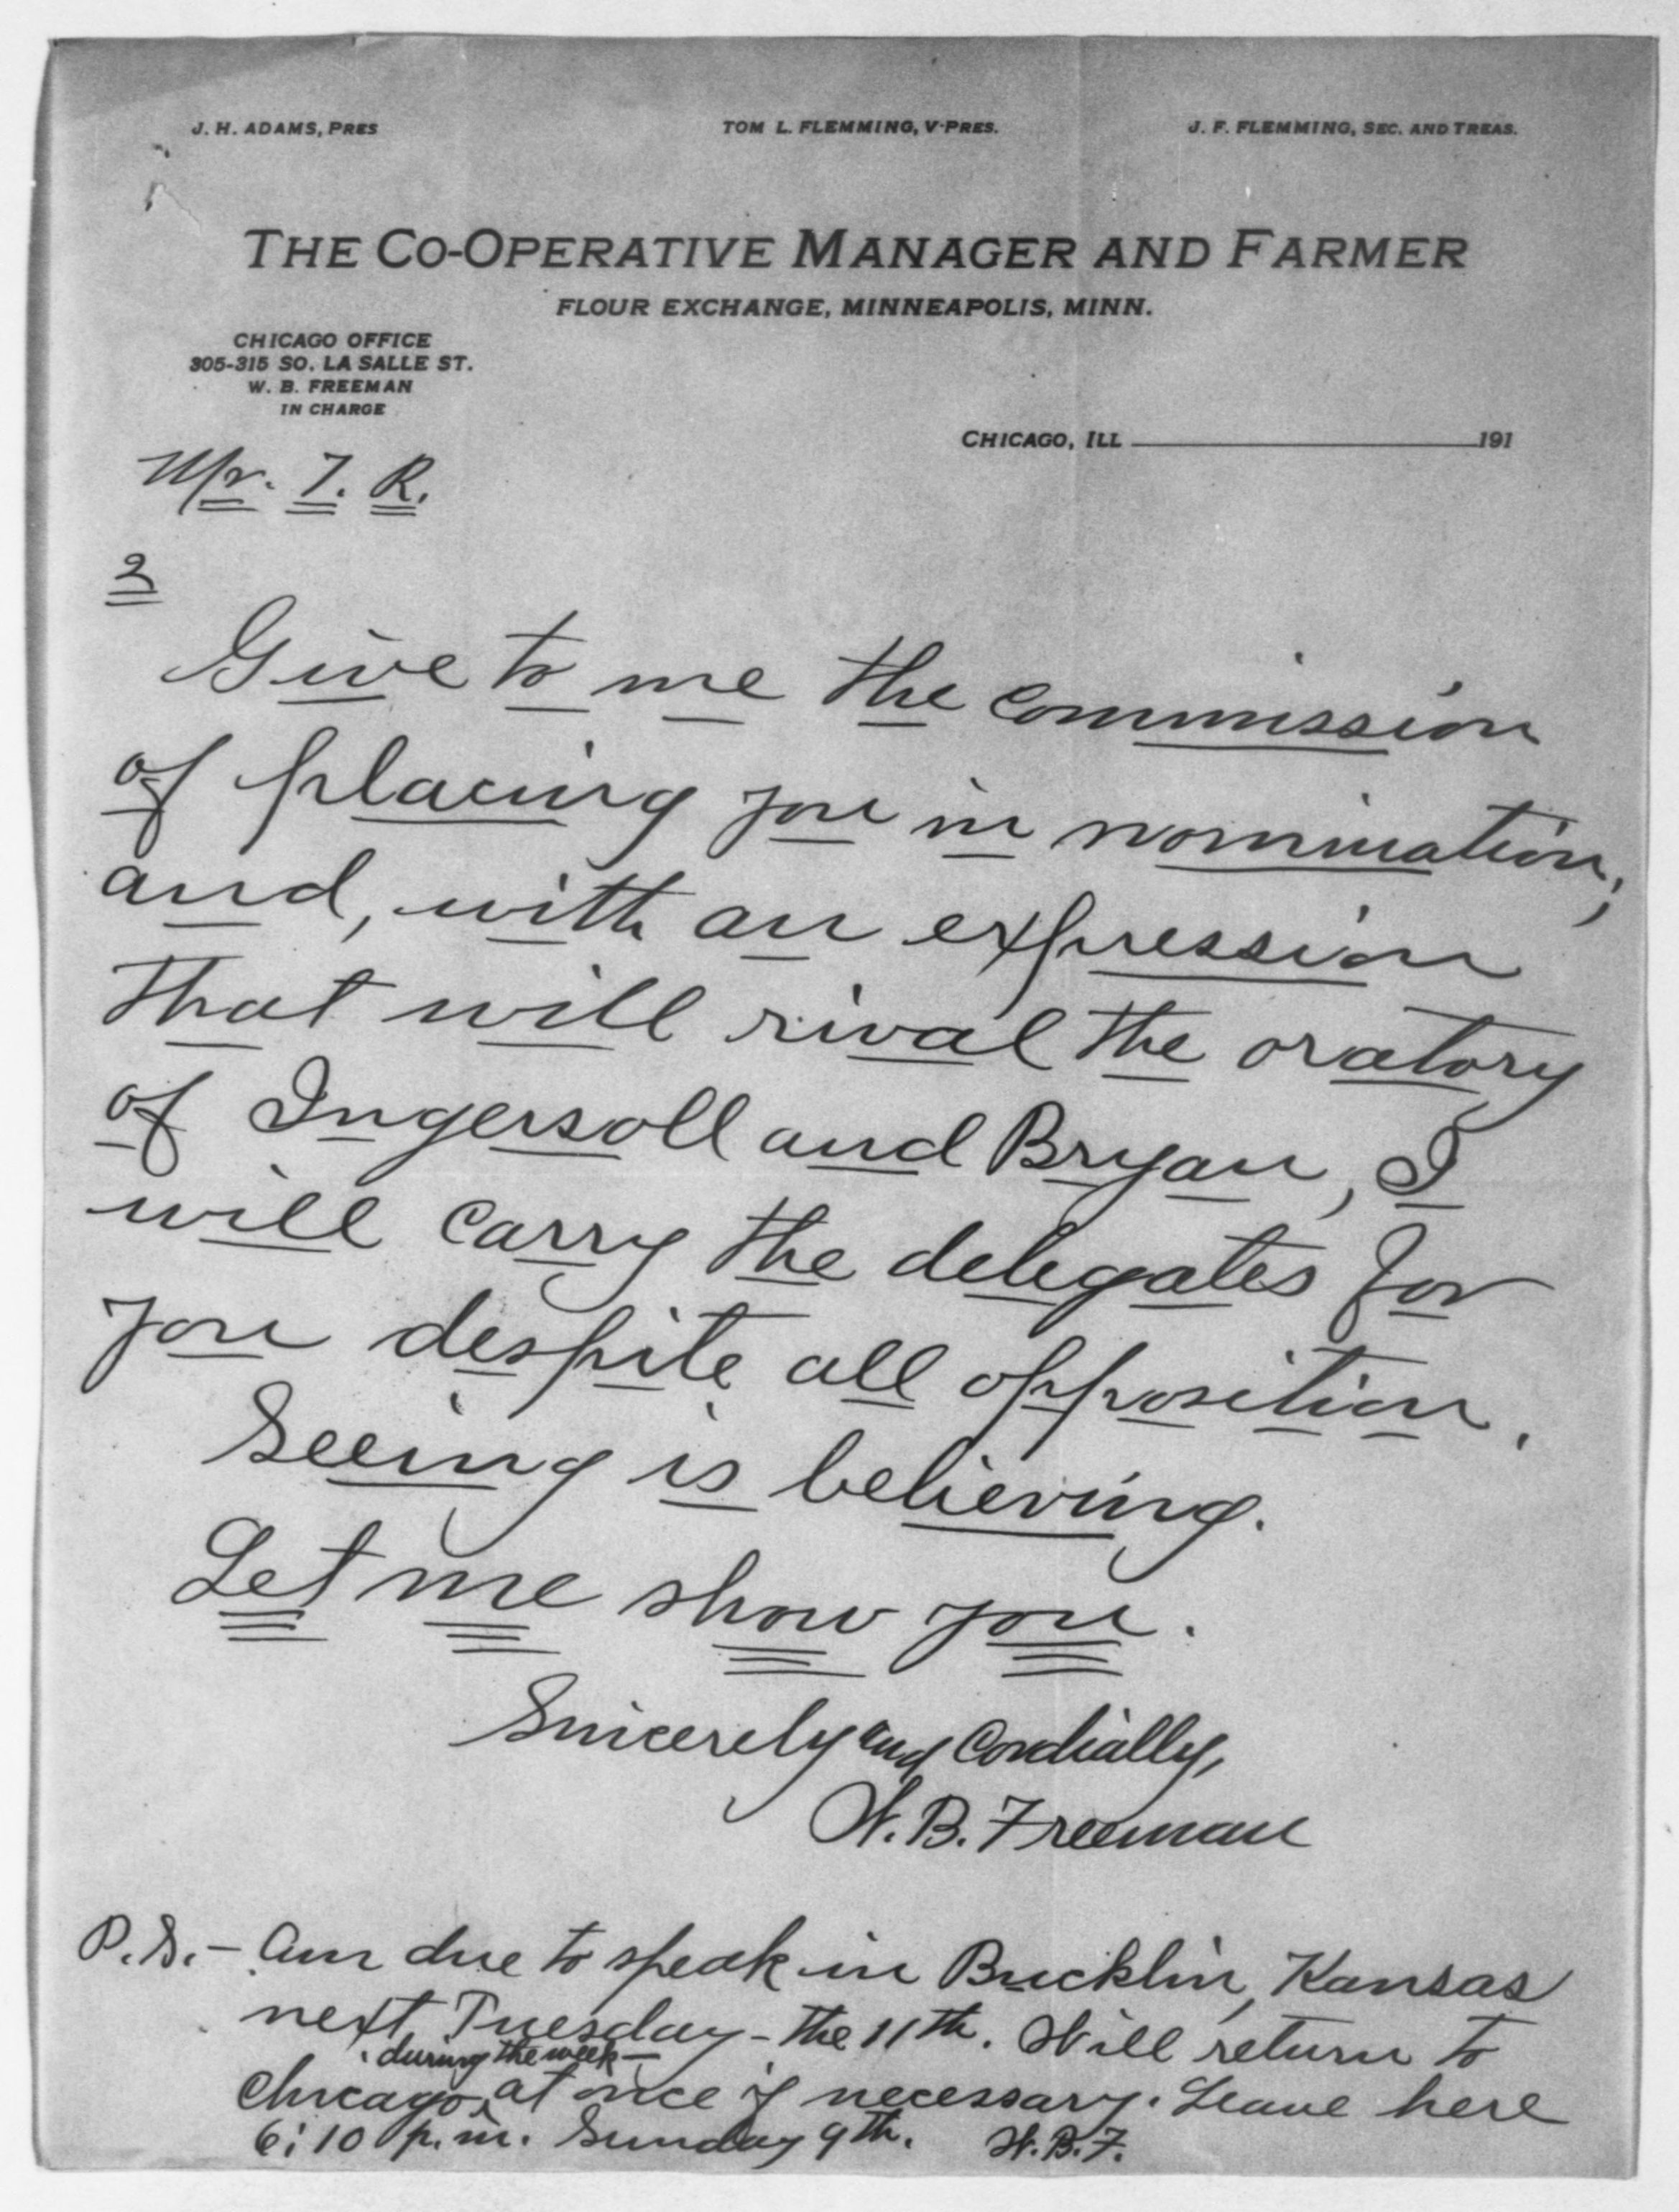 J. H. ADAMS, PRES
TOM L. FLEMMING, V-PRES.
J. F. FLEMMING, SEC. AND TREAS.
THE CO-OPERATIVE MANAGER AND FARMER
FLOUR EXCHANGE, MINNEAPOLIS, MINN.
CHICAGO OFFICE
305-315 SO. LA SALLE ST.
W. B. FREEMAN
IN CHARGE
CHICAGO, ILL 191
Mr. T. R.
2
Give to me the commission
of placing you in nomination;
and, with an expression
that will rival the oratory
of Ingersoll and Bryan, I
will carry the delegates for
you despite all opposition.
Seeing is believing.
Let me show you.
Sincerely and Cordially,
W. B. Freeman
P.S.- Am due to speak in Bucklin, Kansas
next Tuesday - the 11th. Will return to
during the week -
Chicago, at once if necessary. Leave here
6:10 p.m. Sunday 9th. W.B.F.